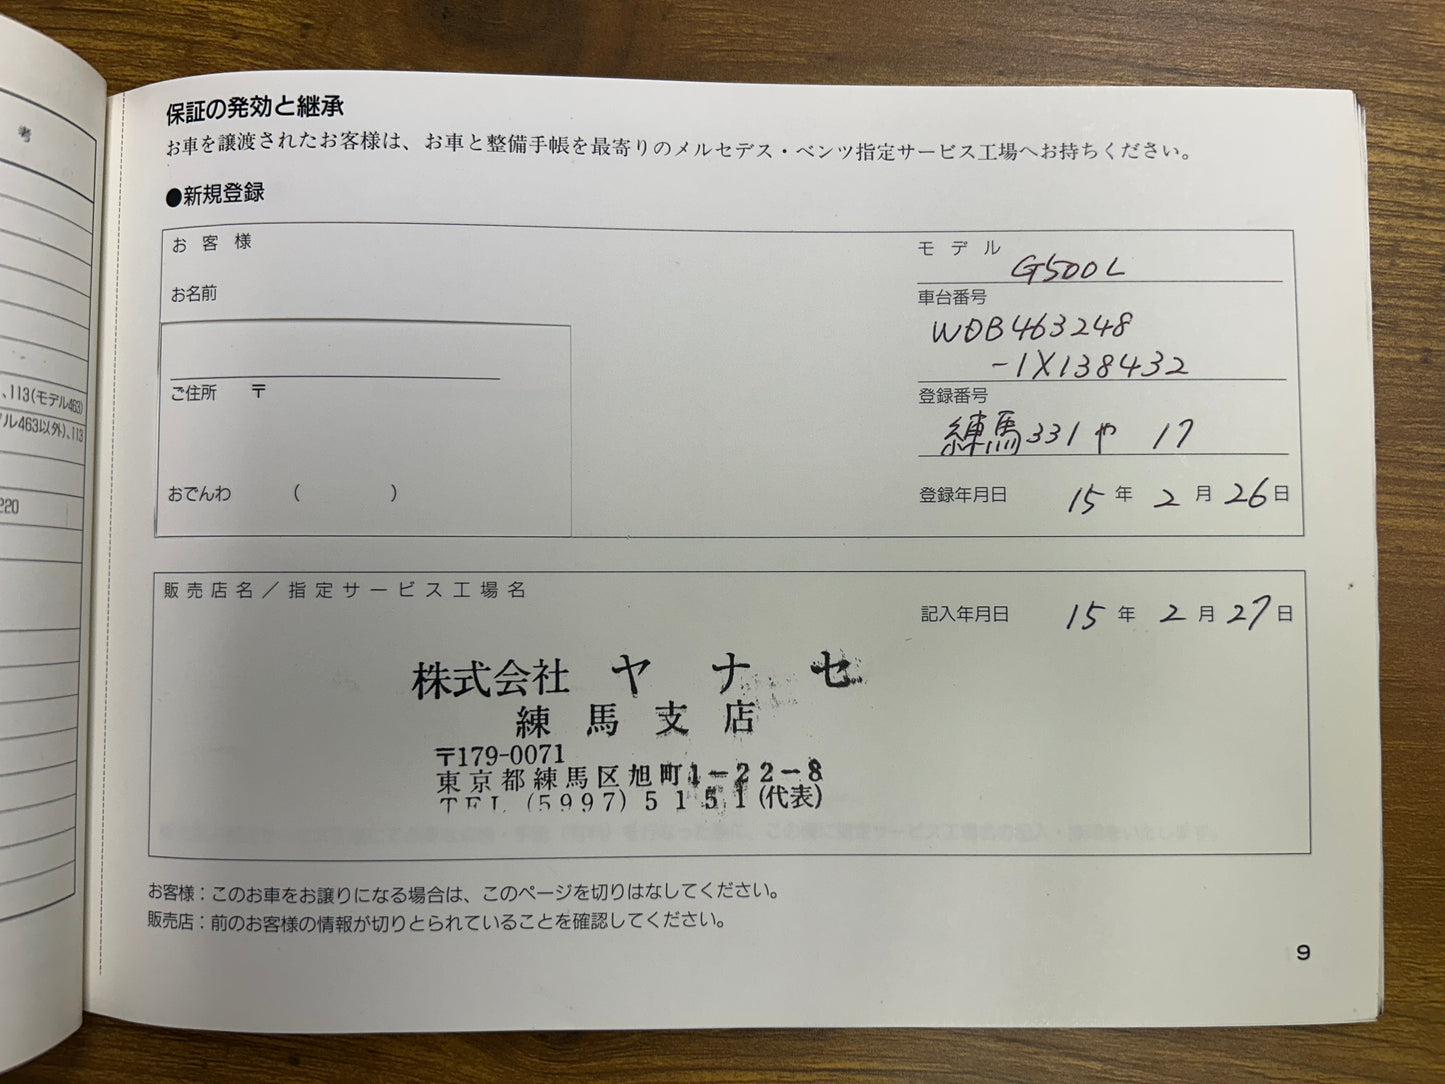 考
、113(モデル463)
ル463以外)、113
220
保証の発効と継承
お車を譲渡されたお客様は、お車と整備手帳を最寄りのメルセデス・ベンツ指定サービス工場へお持ちください。
●新規登録
お客様
お名前
ご住所 〒
おでんわ ( )
モデル G500L
車台番号
WDB463248
-1X138432
登録番号
練馬331や 17
登録年月日 15年2月26日
販売店名／指定サービス工場名
記入年月日 15年2月27日
株式会社 ヤナセ
練馬支店
〒179-0071
東京都練馬区旭町1-22-8
TEL (5997) 5151 (代表)
お客様：このお車をお譲りになる場合は、このページを切りはなしてください。
販売店：前のお客様の情報が切りとられていることを確認してください。
9